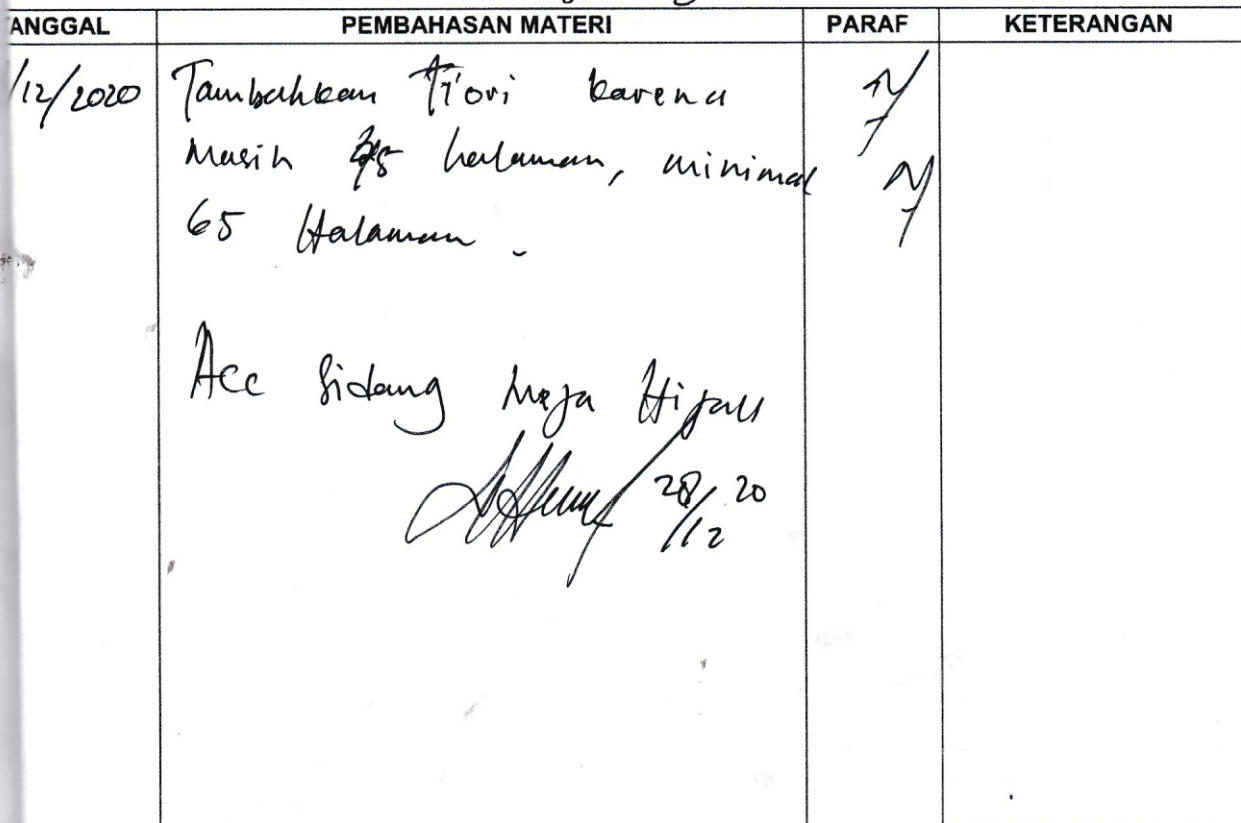 ANGGAL PEMBAHASAN MATERI PARAF KETERANGAN
/12/2020 Tambahkan Tiori karena
masih halaman, minimal
65 Halaman.
Acc Sidang Meja Hijau
28/12 20